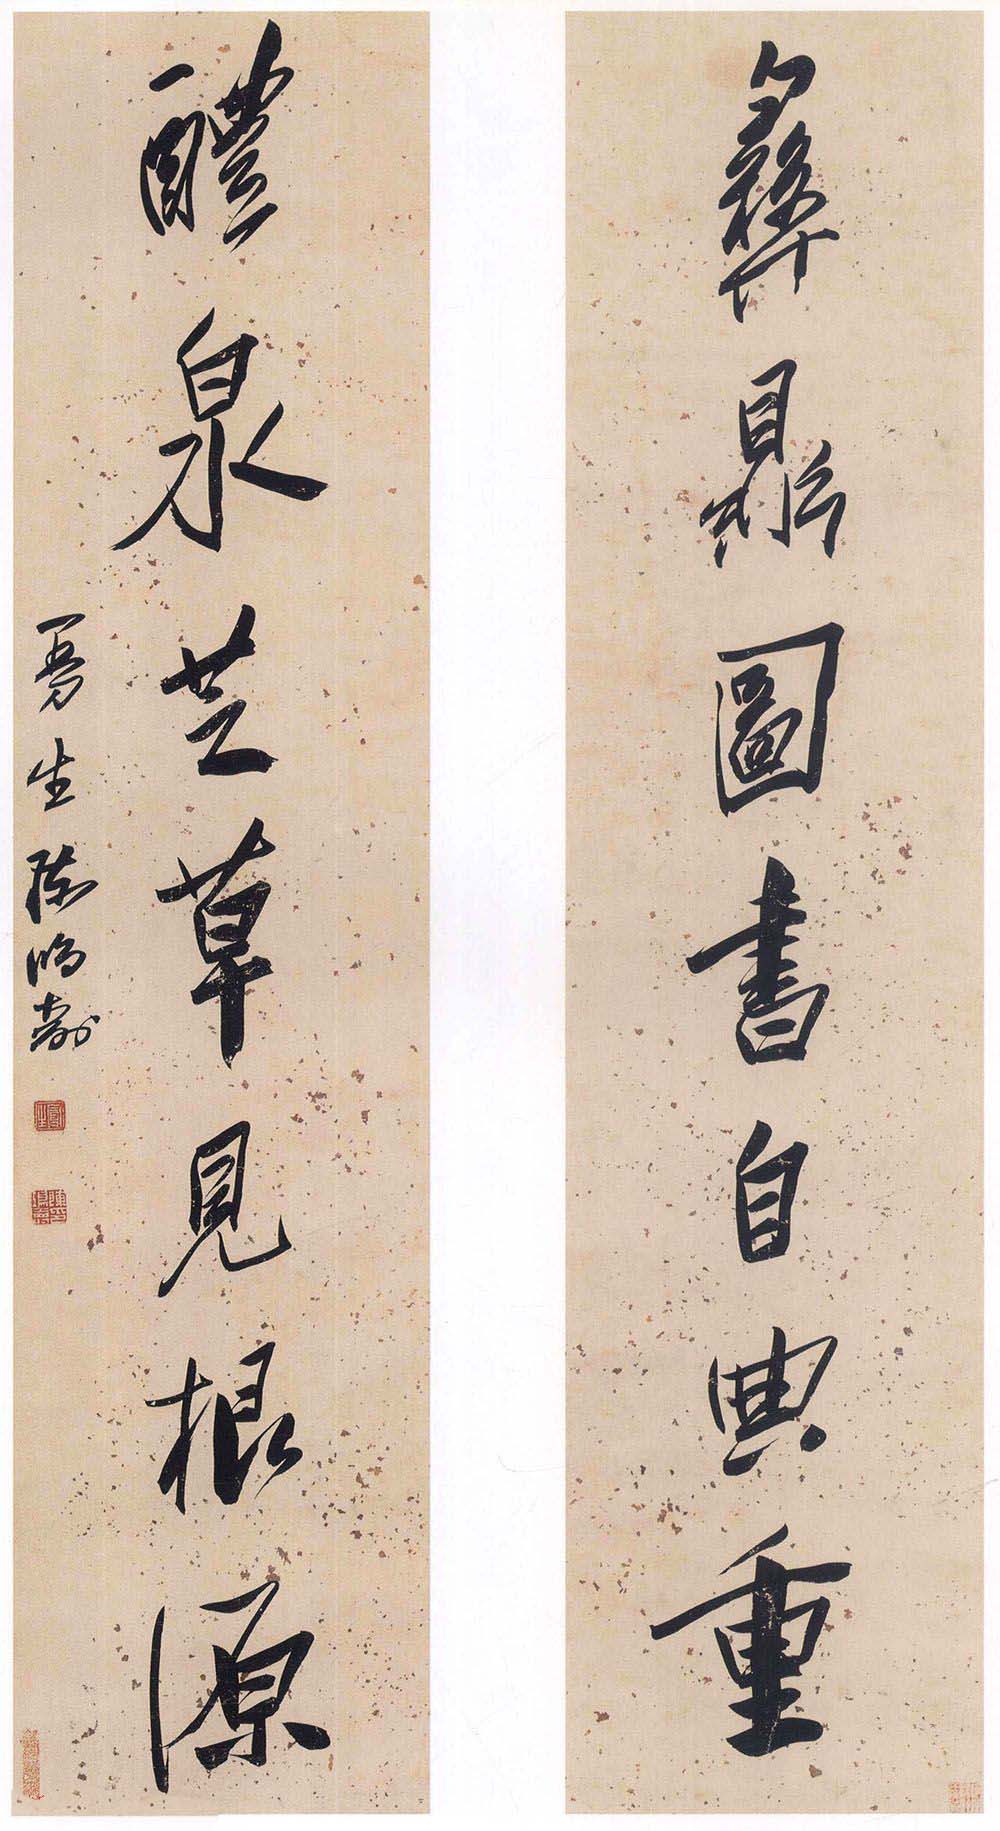 彝鼎圖書自典重
醴泉芝草見根源
曼生陳鴻壽